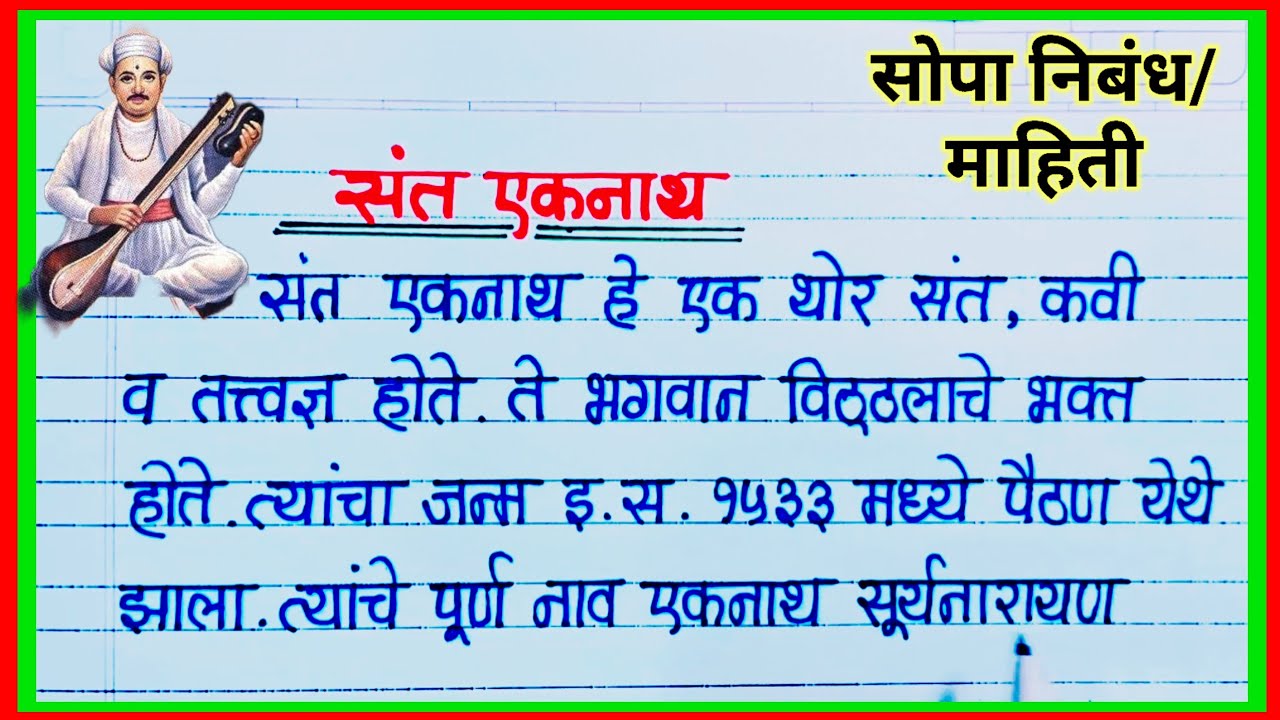 सोपा निबंध/
माहिती
संत एकनाथ
संत एकनाथ हे एक थोर संत, कवी
व तत्त्वज्ञ होते. ते भगवान विठ्ठलाचे भक्त
होते. त्यांचा जन्म इ.स. १५३३ मध्ये पैठण येथे
झाला. त्यांचे पूर्ण नाव एकनाथ सूर्यनारायण